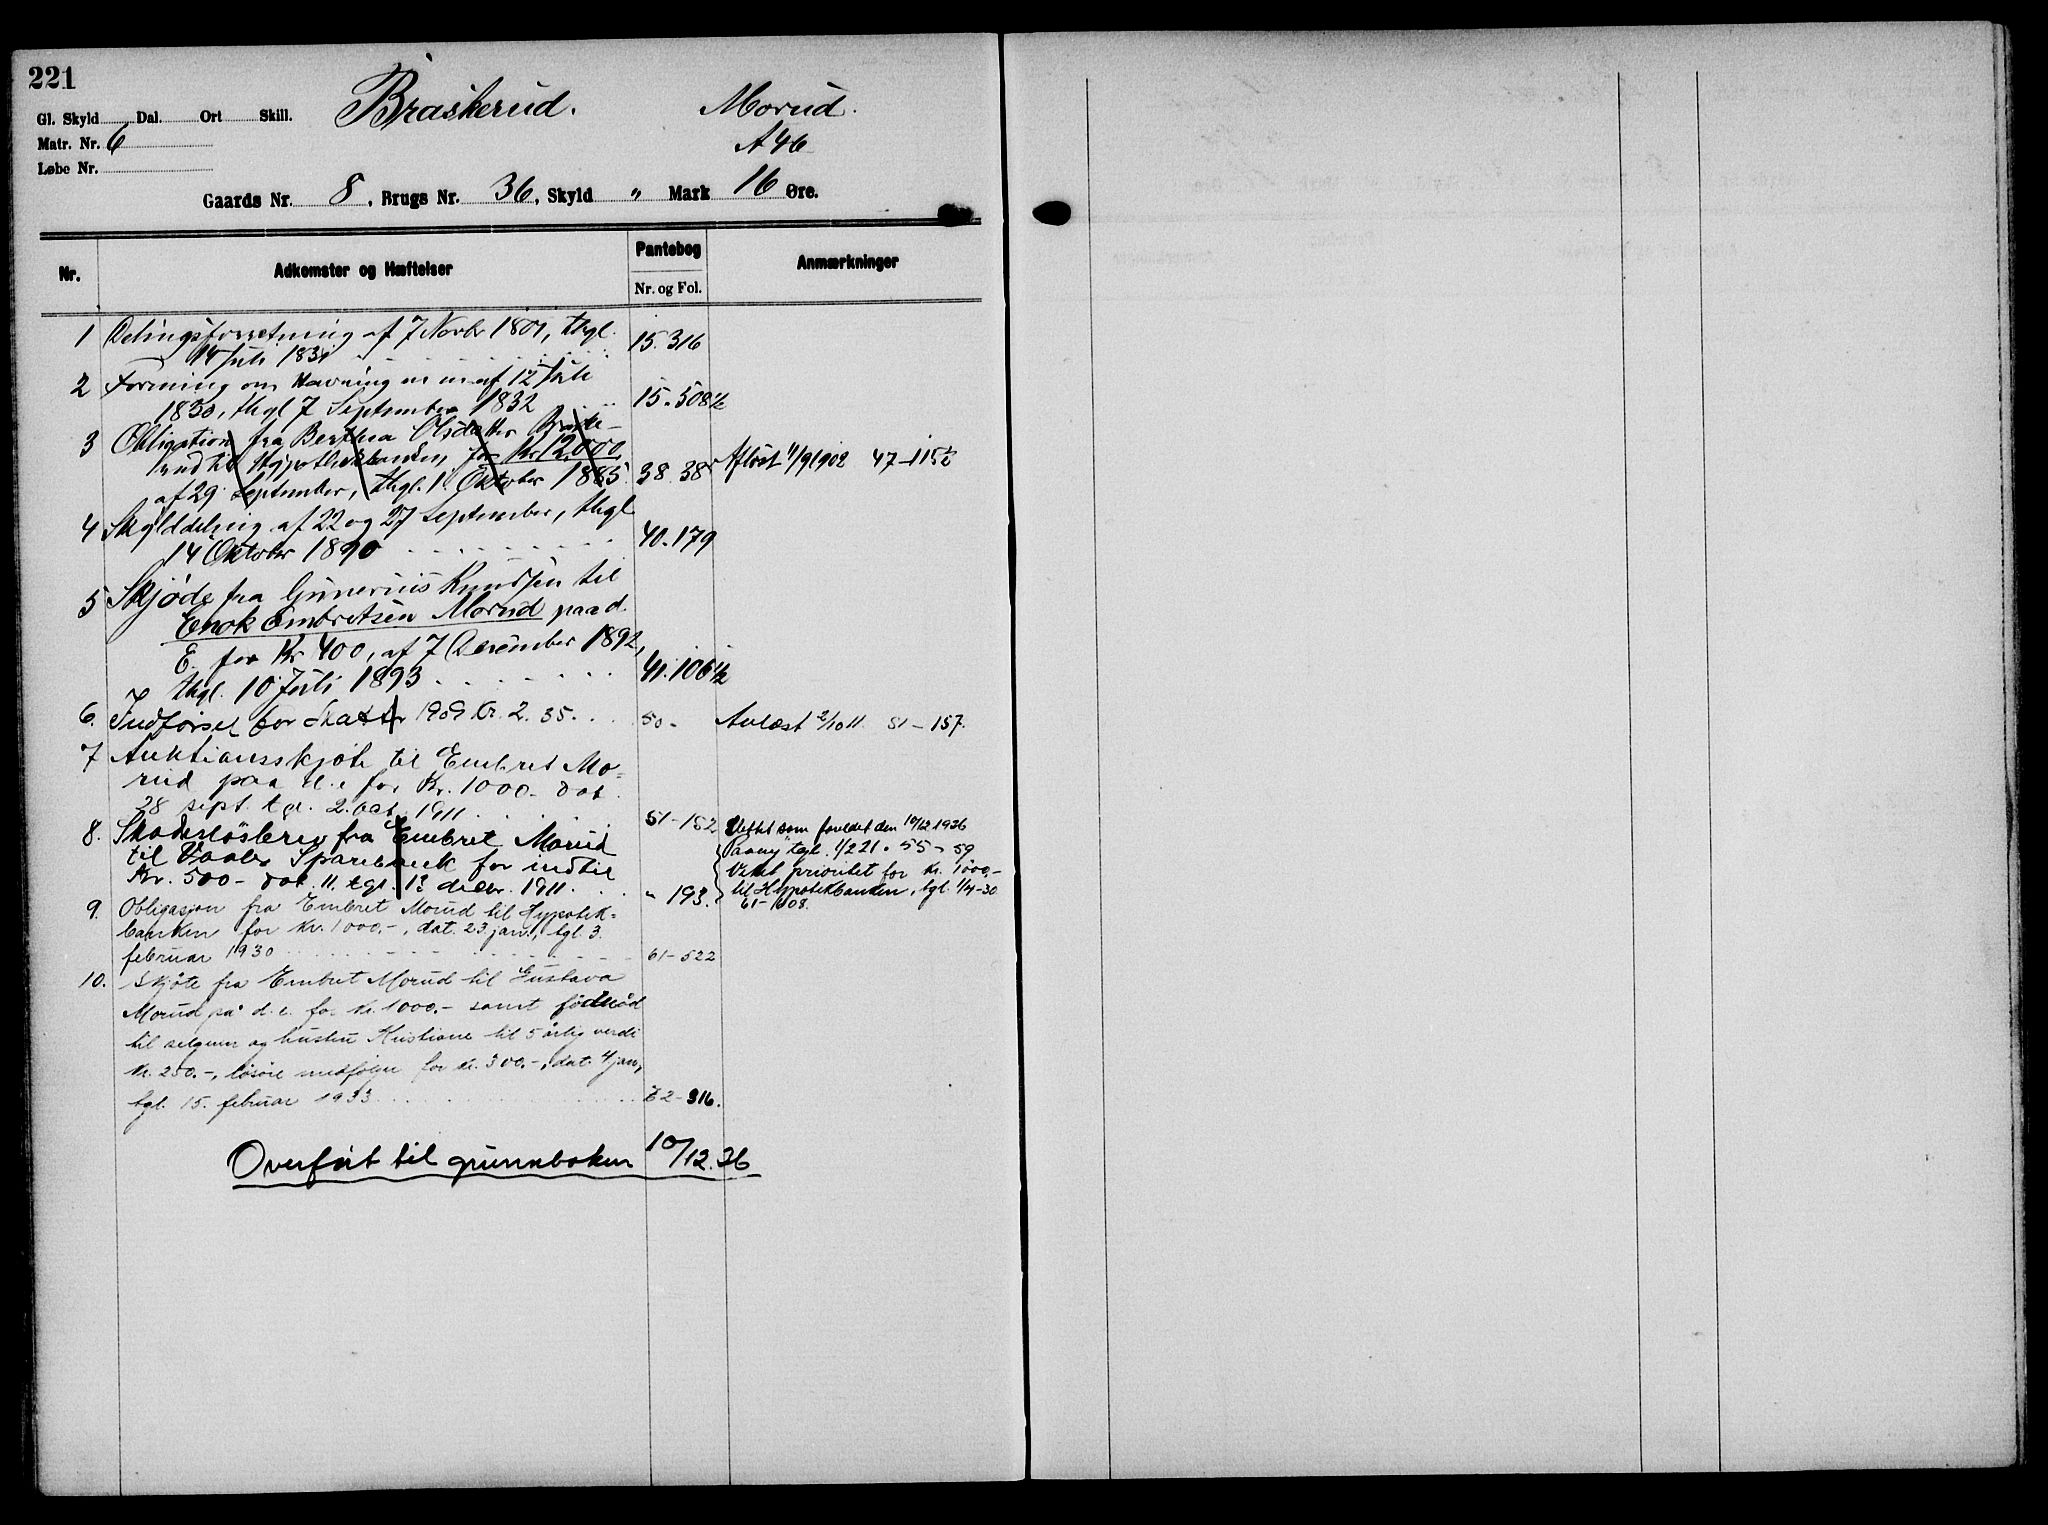 221
Braskerud. Morud.
Gl. Skyld Dal. Ort Skill.
Matr. Nr. 6 A 46
Løbe Nr.
Gaards Nr. 8, Brugs Nr. 36, Skyld " Mark 16 Øre.
Nr. Adkomster og Hæftelser Pantebog Anmærkninger
Nr. og Fol.
1 Delingsforretning af 7 Novbr 1801, thgl.
14 Juli 1831 15. 316
2 Forening om Havning m m af 12 Juli
1830, thgl 7 September 1832 15. 508½
3 Obligation fra Berthea Olsdatter Braske-
rud til Hypothekbanken, for Kr 12,000,
af 29 September, thgl. 1. Oktober 1885. 38. 385 Afløst 11/9 1902 47-115½
4 Skylddeling af 22 og 27 September, thgl
14 Oktober 1890 40. 179
5 Skjøde fra Gunerius Knudsen til
Enok Embretsen Morud paa d.
E. for Kr 400, af 7 December 1892,
thgl. 10 Juli 1893 41. 106½
6. Indførsel for Skatter 1909 kr. 2. 35. 50- Avlæst 2/10 11. 51-157.
7 Auktionsskjøte til Embret Mo-
rud paa d. e for Kr. 1000.- dat.
28 sept. tgl. 2. oct. 1911 51-152
8. Skadesløsbrev fra Embret Morud Slettet som foreldet den 10/12 1936
til Vaaler Sparebank for indtil Paany tgl. 1/2 21. 55-59
Kr. 500- dat. 11. tgl. 12 decbr. 1911. " 193. Veket prioritet for kr. 1000.-
til Hypotekbanken, tgl. 1/4-30
61-608.
9. Obligasjon fra Embret Morud til Hypotek-
banken for kr. 1000.-, dat. 23 jan., tgl. 3.
februar 1930 61-522
10. Skjøte fra Embret Morud til Gustava
Morud på d. e. for kr. 1000.- samt föderåd
til selgeren og hustru Kristiane til 5 årlig verdi
kr. 250.-, løsøre medfølger for kr. 300.-, dat. 4 jan,
tgl. 15. februar 1933 62-316.
Overført til grunnboken 10/12. 36